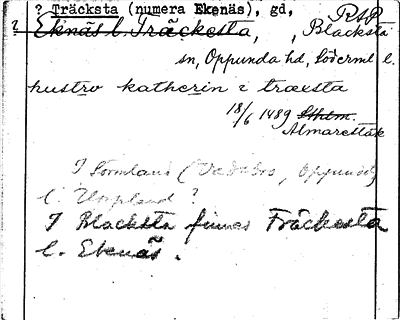 ? Träcksta (numera Ekenäs), gd,
RAP
? Eknäs l. Träckesta, , Blacksta
sn, Oppunda hd, Söderml l.
hustro katherin i træsta
18/6 1489 Sthlm.
Almarestäk
I Sörmland ( , Oppunda)
l. Uppland ?
I Blacksta finnes Träckesta
l. Eknäs.